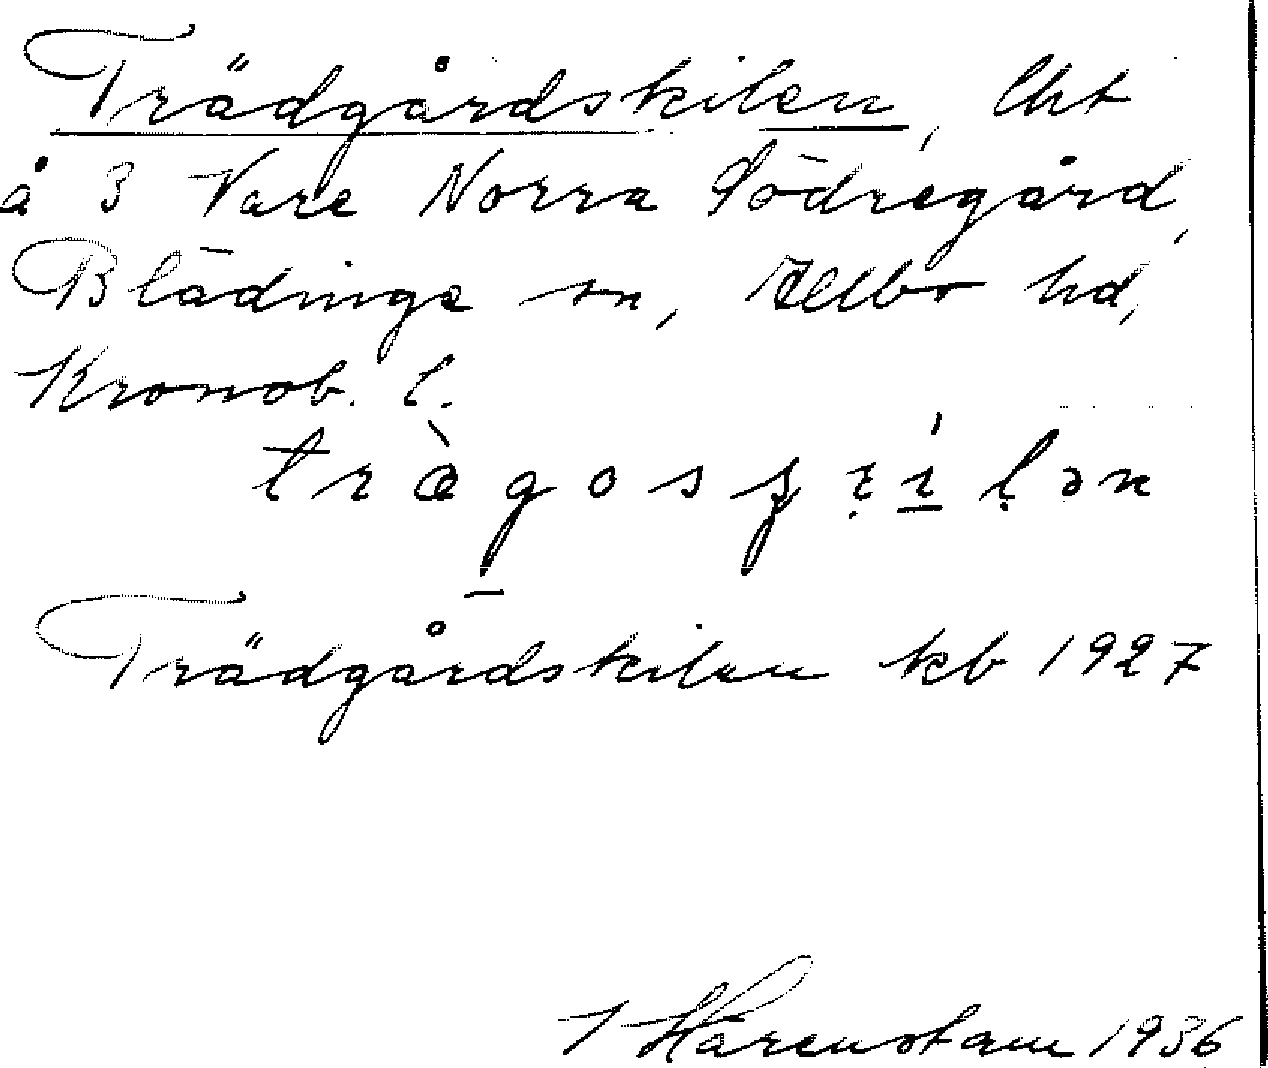 Trädgårdskilen, lht
å 3 Vare Norra Södregård,
Blädinge sn, Allbo hd,
Kronob. l.
Trädgårdskilen kb 1927
Härenstam 1936